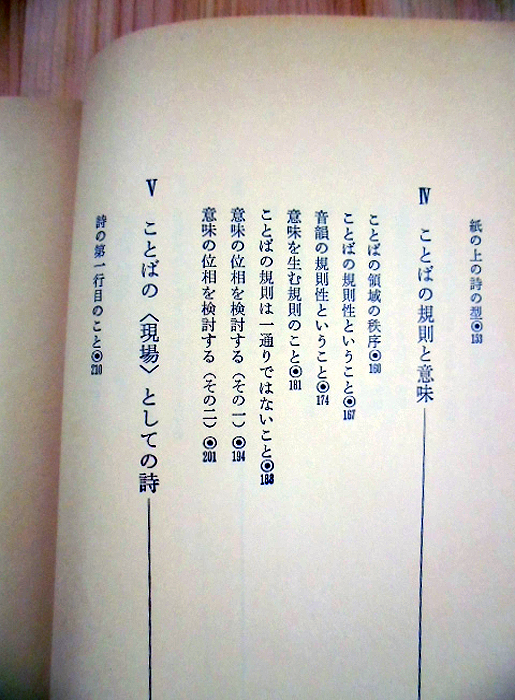 紙の上の詩の型◉153
Ⅳ ことばの規則と意味
ことばの領域の秩序◉160
ことばの規則性ということ◉167
音韻の規則性ということ◉174
意味を生む規則のこと◉181
ことばの規則は一通りではないこと◉188
意味の位相を検討する（その一）◉194
意味の位相を検討する（その二）◉201
Ⅴ ことばの〈現場〉としての詩
詩の第一行目のこと◉210